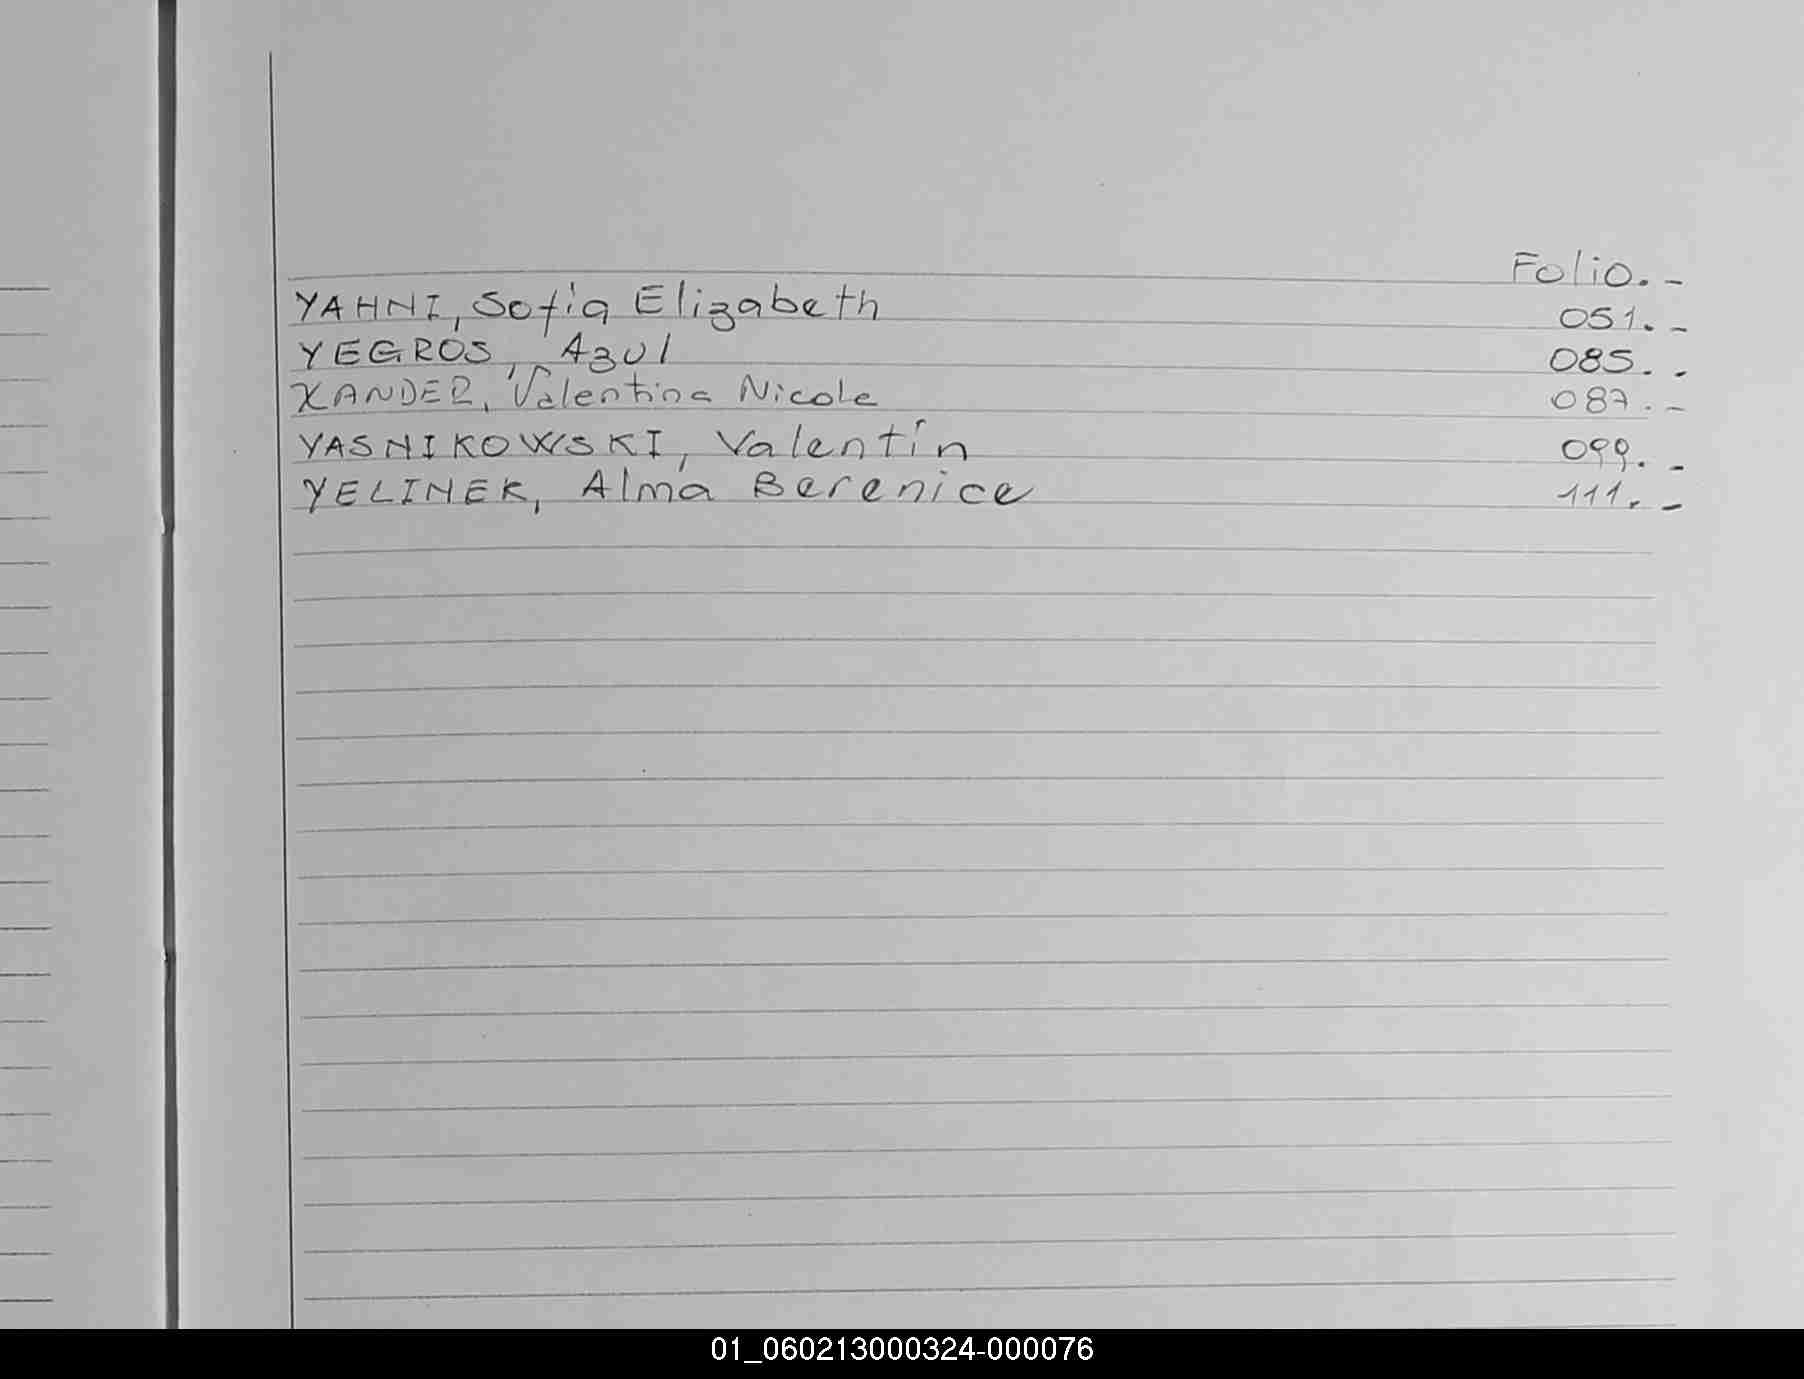 Folio.-
YAHNI, Sofia Elizabeth 051.-
YEGROS, Azul 085.-
XANDER, Valentina Nicole 087.-
YASNIKOWSKI, Valentín 099.-
YELINEK, Alma Berenice 111.-
01_060213000324-000076